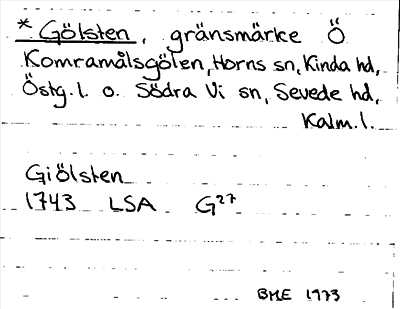 * Gölsten, gränsmärke Ö
Komramålsgölen, Horns sn, Kinda hd,
Östg. l. o. Södra Vi sn, Sevede hd,
Kalm. l.
Giölsten
1743 LSA G27
BME 1973